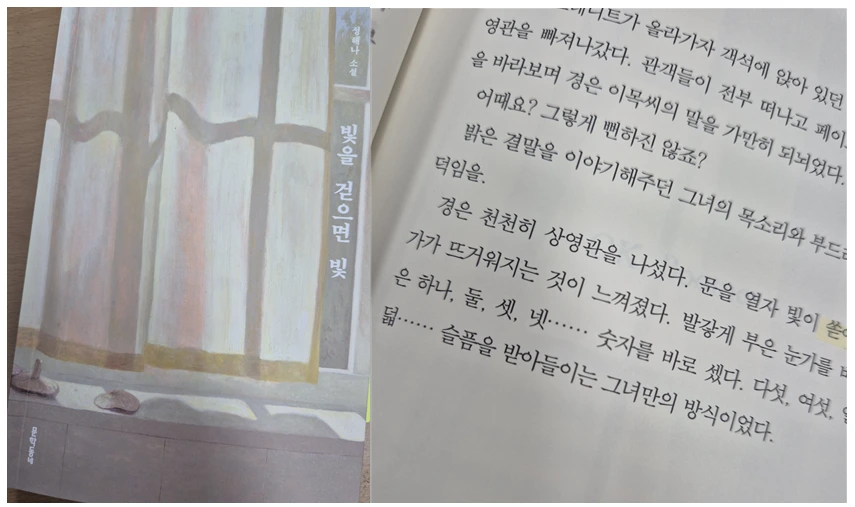 성해나 소설
빛을 걷으면 빛
문학동네
올라가자 객석에 앉아 있던
영관을 빠져나갔다. 관객들이 전부 떠나고
을 바라보며 경은 이목씨의 말을 가만히 되뇌었다.
어때요? 그렇게 뻔하진 않죠?
밝은 결말을 이야기해주던 그녀의 목소리와
덕임을.
경은 천천히 상영관을 나섰다. 문을 열자 빛이
가가 뜨거워지는 것이 느껴졌다. 발갛게 부은 눈가를
은 하나, 둘, 셋, 넷…… 숫자를 바로 셌다. 다섯, 여섯,
덟…… 슬픔을 받아들이는 그녀만의 방식이었다.